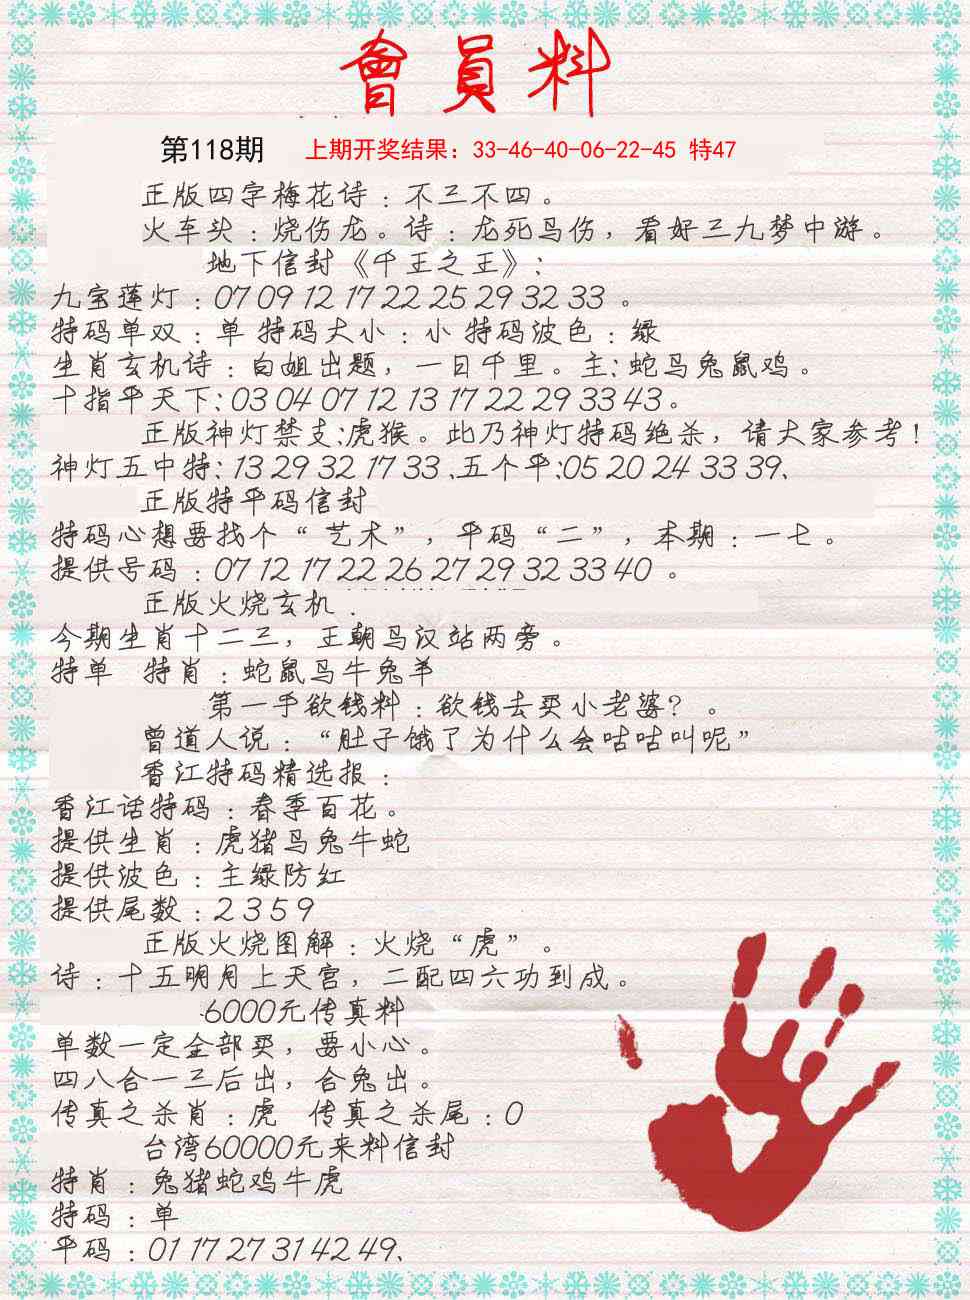 會員料
第118期 上期开奖结果：33-46-40-06-22-45 特47
正版四字梅花诗：不三不四。
火车头：烧伤龙。诗：龙死马伤，看好三九梦中游。
地下信封《千王之王》：
九宝莲灯：07 09 12 17 22 25 29 32 33 。
特码单双：单 特码大小：小 特码波色：绿
生肖玄机诗：白姐出题，一日千里。主：蛇马兔鼠鸡。
十指平天下：03 04 07 12 13 17 22 29 33 43。
正版神灯禁支:虎猴。此乃神灯特码绝杀，请大家参考！
神灯五中特：13 29 32 17 33 、五个平：05 20 24 33 39、
正版特平码信封
特码心想要找个“艺术”，平码“二”，本期：一七。
提供号码：07 12 17 22 26 27 29 32 33 40 。
正版火烧玄机：
今期生肖十二三，王朝马汉站两旁。
特单 特肖：蛇鼠马牛兔羊
第一手欲钱料：欲钱去买小老婆？。
曾道人说：“肚子饿了为什么会咕咕叫呢”
香江特码精选报：
香江话特码：春季百花。
提供生肖：虎猪马兔牛蛇
提供波色：主绿防红
提供尾数：2 3 5 9
正版火烧图解：火烧“虎”。
诗：十五明月上天宫，二配四六功到成。
6000元传真料
单数一定全部买，要小心。
四八合一三后出，合兔出。
传真之杀肖：虎 传真之杀尾：0
台湾60000元来料信封
特肖：兔猪蛇鸡牛虎
特码：单
平码：01 17 27 31 42 49、